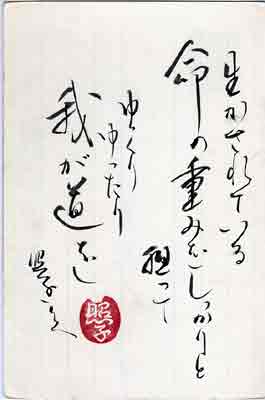 生かされている
命の重みをしっかりと
担って
ゆっくり
ゆったり
我が道を
照子
照子